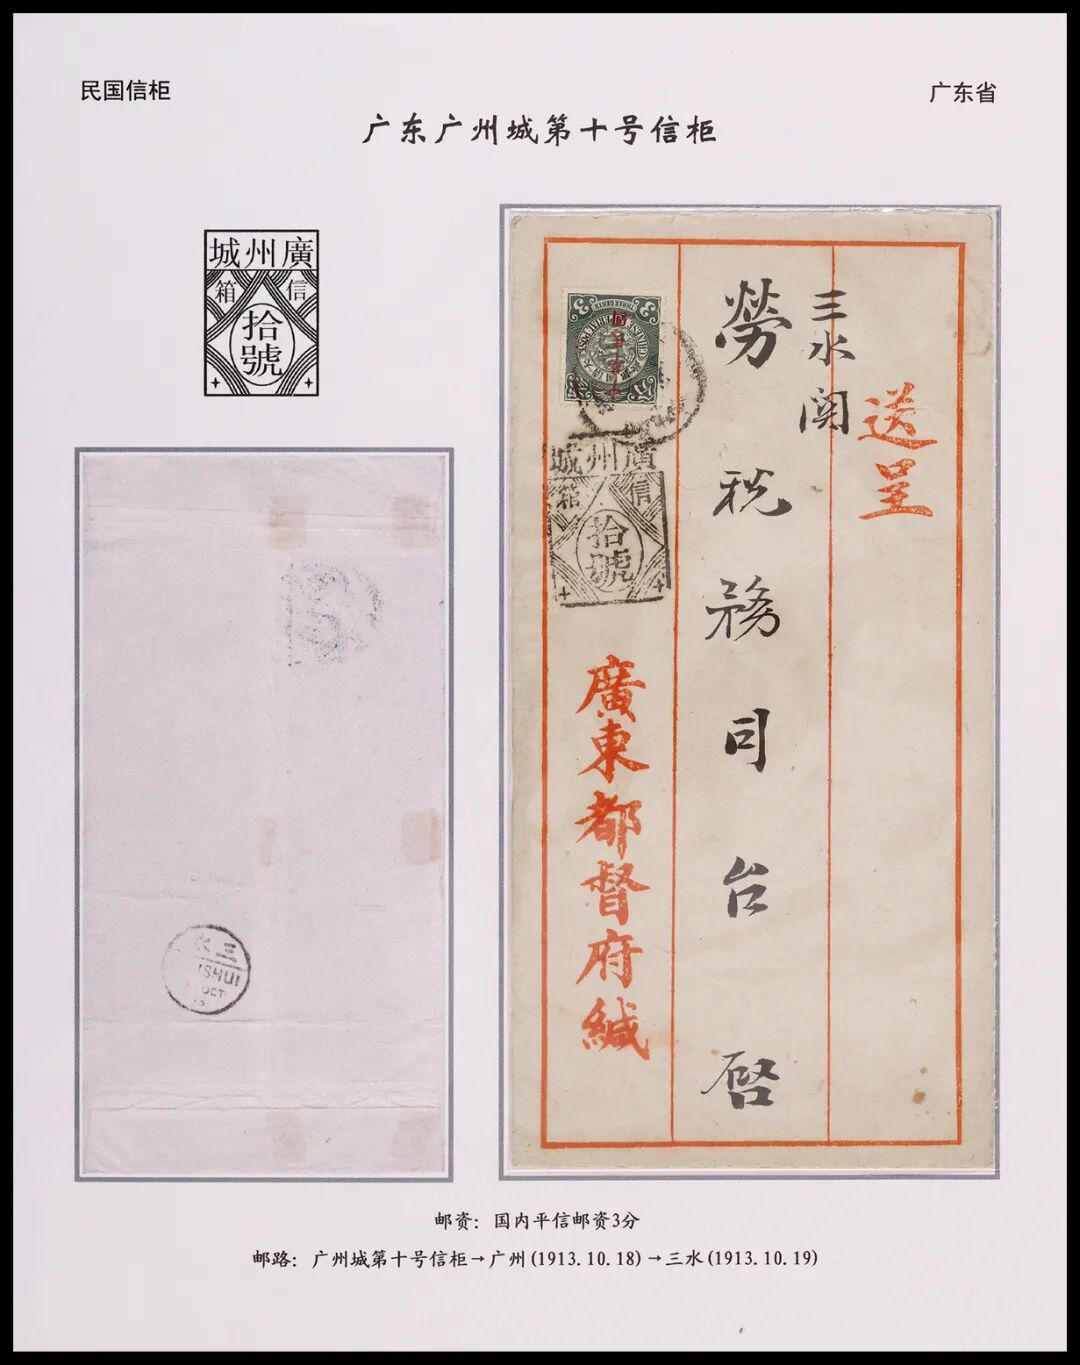 民国信柜
广东省
广东广州城第十号信柜
廣州城
信箱
拾號
送呈
三水関
勞税務司台啓
THREE CENTS
廣州城
信箱
拾號
廣東都督府緘
三水
SHUI
OCT
邮资：国内平信邮资3分
邮路：广州城第十号信柜→广州(1913.10.18)→三水(1913.10.19)